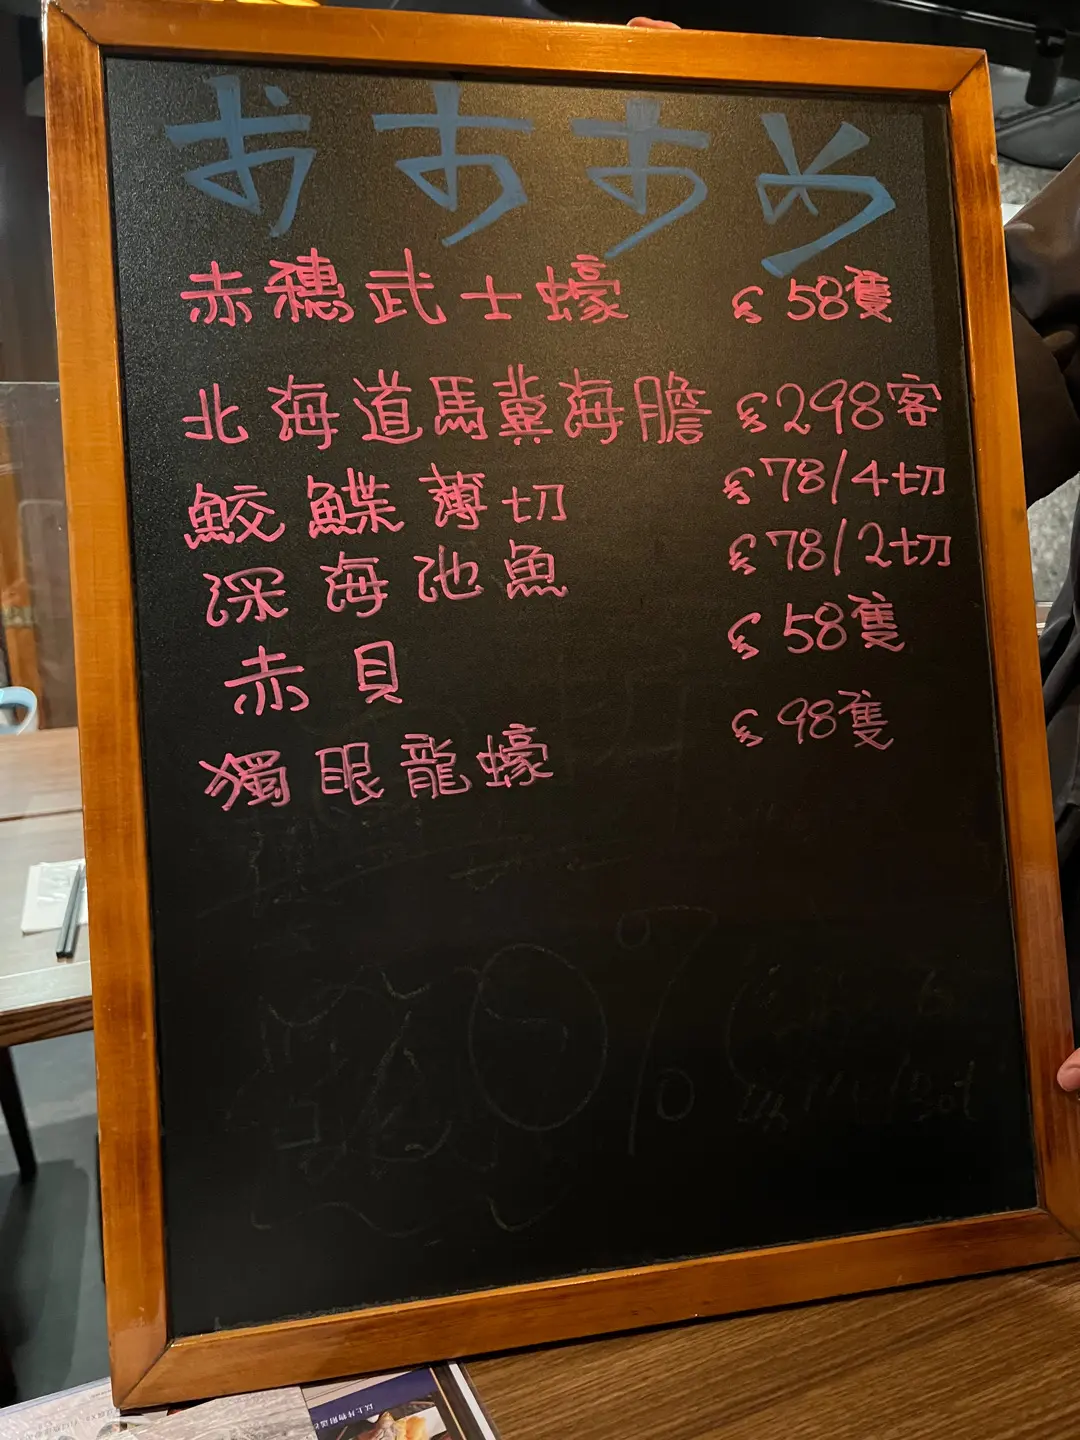 おすすめ
赤穗武士蠔 $58隻
北海道馬糞海膽 $298客
鮫鰈薄切 $78/4切
深海池魚 $78/2切
赤貝 $58隻
獨眼龍蠔 $98隻